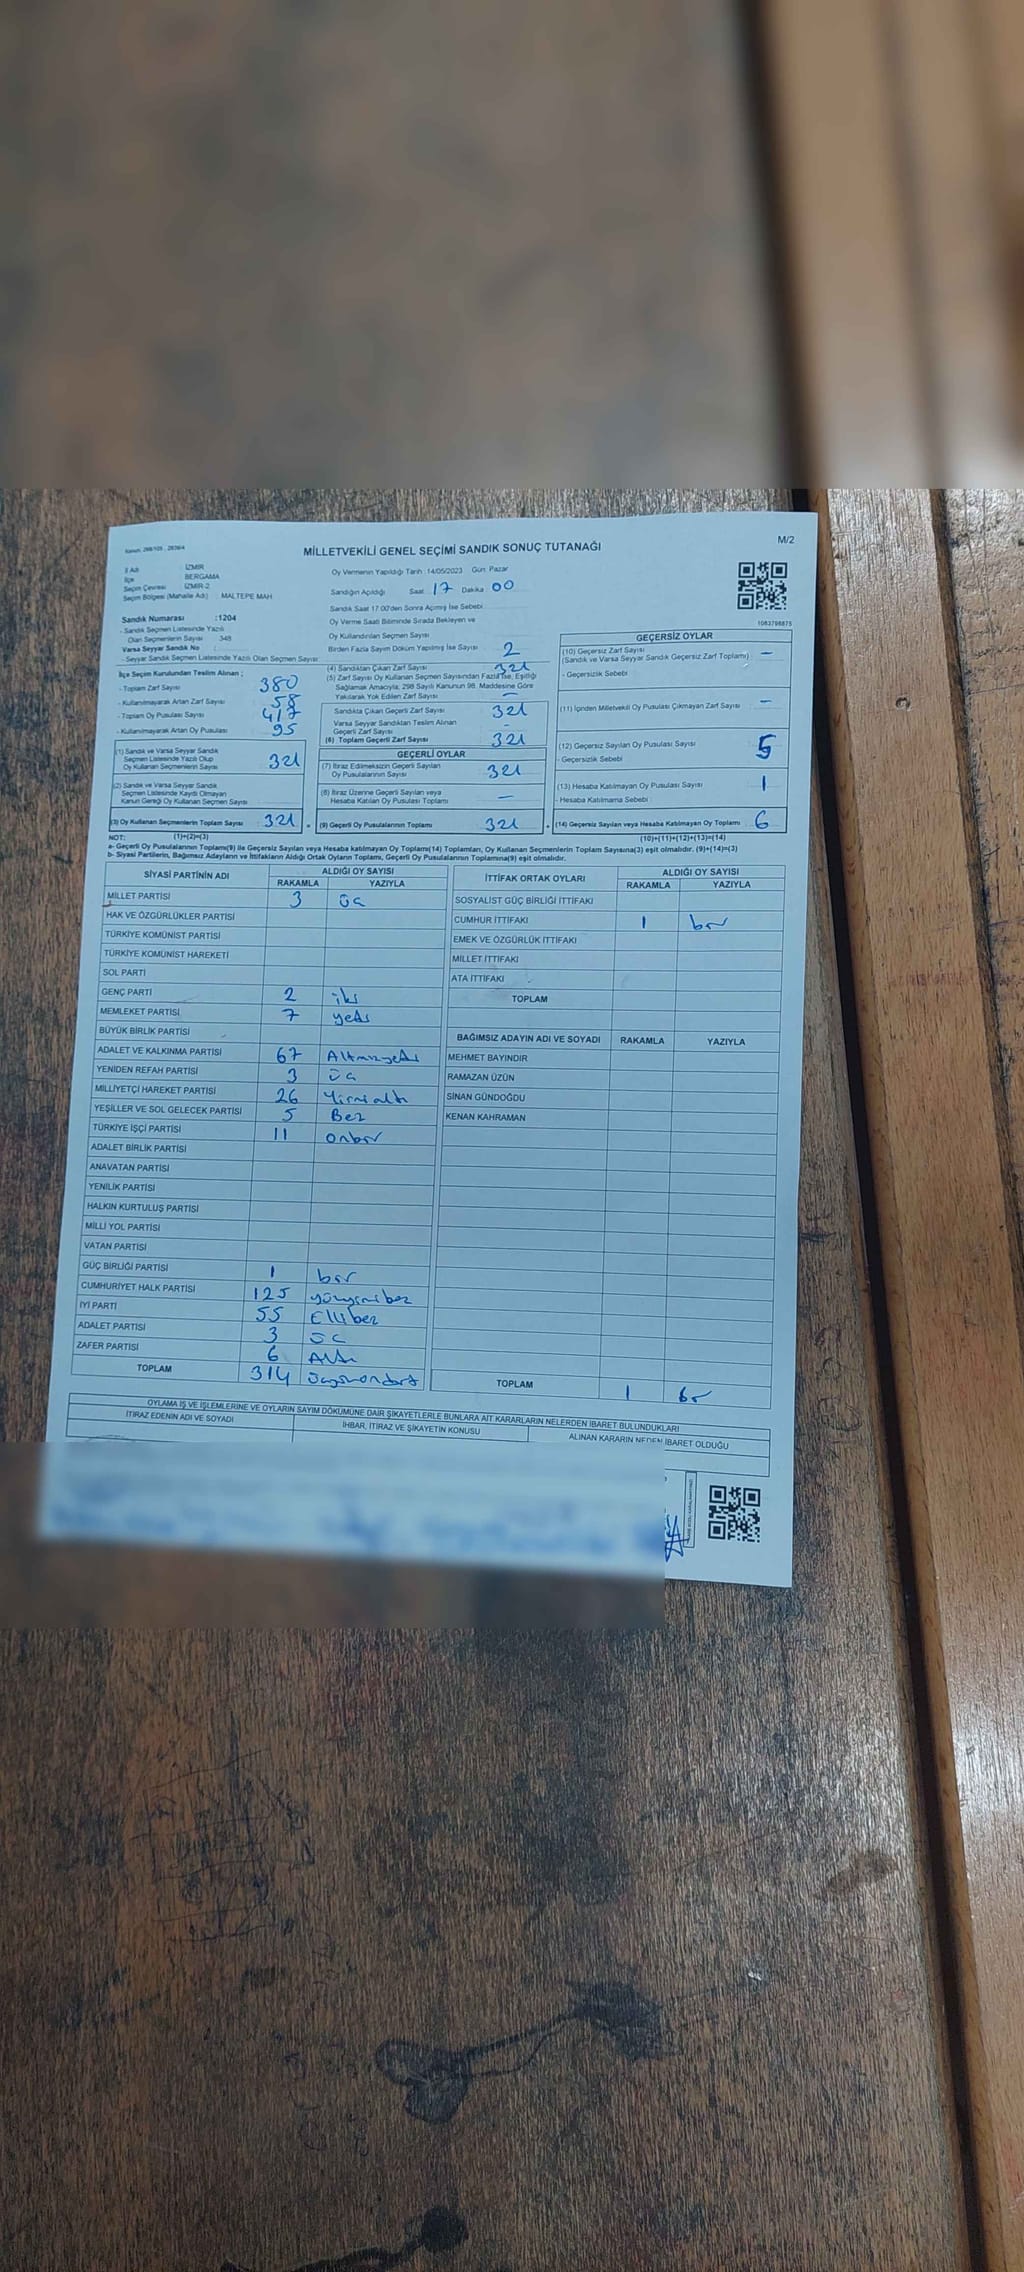 Kanun: 298/105 , 2839/4
MİLLETVEKİLİ GENEL SEÇİMİ SANDIK SONUÇ TUTANAĞI
M/2
İl Adı İZMİR
İlçe BERGAMA
Seçim Çevresi İZMİR-2
Seçim Bölgesi (Mahalle Adı) : MALTEPE MAH
Sandık Numarası :1204
- Sandık Seçmen Listesinde Yazılı
Olan Seçmenlerin Sayısı 348
Varsa Seyyar Sandık No
- Seyyar Sandık Seçmen Listesinde Yazılı Olan Seçmen Sayısı:
İlçe Seçim Kurulundan Teslim Alınan ;
- Toplam Zarf Sayısı 380
- Kullanılmayarak Artan Zarf Sayısı 58
- Toplam Oy Pusulası Sayısı 417
- Kullanılmayarak Artan Oy Pusulası 95
(1) Sandık ve Varsa Seyyar Sandık
Seçmen Listesinde Yazılı Olup
Oy Kullanan Seçmenlerin Sayısı 321
(2) Sandık ve Varsa Seyyar Sandık
Seçmen Listesinde Kaydı Olmayan
Kanun Gereği Oy Kullanan Seçmen Sayısı
(3) Oy Kullanan Seçmenlerin Toplam Sayısı 321
Oy Vermenin Yapıldığı Tarih :14/05/2023 Gün: Pazar
Sandığın Açıldığı Saat 17 Dakika 00
Sandık Saat 17.00'den Sonra Açılmış İse Sebebi
Oy Verme Saati Bitiminde Sırada Bekleyen ve
Oy Kullandırılan Seçmen Sayısı
Birden Fazla Sayım Döküm Yapılmış İse Sayısı 2
(4) Sandıktan Çıkan Zarf Sayısı 321
(5) Zarf Sayısı Oy Kullanan Seçmen Sayısından Fazla İse, Eşitliği
Sağlamak Amacıyla, 298 Sayılı Kanunun 98. Maddesine Göre
Yakılarak Yok Edilen Zarf Sayısı –
Sandıkta Çıkan Geçerli Zarf Sayısı 321
Varsa Seyyar Sandıktan Teslim Alınan
Geçerli Zarf Sayısı –
(6) Toplam Geçerli Zarf Sayısı 321
GEÇERLİ OYLAR
(7) İtiraz Edilmeksizin Geçerli Sayılan
Oy Pusulalarının Sayısı 321
(8) İtiraz Üzerine Geçerli Sayılan veya
Hesaba Katılan Oy Pusulası Toplamı –
= (9) Geçerli Oy Pusulalarının Toplamı 321
1063798875
GEÇERSİZ OYLAR
(10) Geçersiz Zarf Sayısı –
(Sandık ve Varsa Seyyar Sandık Geçersiz Zarf Toplamı)
- Geçersizlik Sebebi
(11) İçinden Milletvekili Oy Pusulası Çıkmayan Zarf Sayısı –
(12) Geçersiz Sayılan Oy Pusulası Sayısı 5
- Geçersizlik Sebebi
(13) Hesaba Katılmayan Oy Pusulası Sayısı 1
- Hesaba Katılmama Sebebi
+ (14) Geçersiz Sayılan veya Hesaba Katılmayan Oy Toplamı 6
NOT: (1)+(2)=(3) (10)+(11)+(12)+(13)=(14)
a- Geçerli Oy Pusulaları Toplamı(9) ile Geçersiz Sayılan veya Hesaba katılmayan Oy Toplamı(14) Toplamları, Oy Kullanan Seçmenlerin Toplam Sayısına(3) eşit olmalıdır. (9)+(14)=(3)
b- Siyasi Partilerin, Bağımsız Adayların ve İttifakların Aldığı Ortak Oyların Toplamı, Geçerli Oy Pusulalarının Toplamına(9) eşit olmalıdır.
SİYASİ PARTİNİN ADI ALDIĞI OY SAYISI
RAKAMLA YAZIYLA
MİLLET PARTİSİ 3 üç
HAK VE ÖZGÜRLÜKLER PARTİSİ
TÜRKİYE KOMÜNİST PARTİSİ
TÜRKİYE KOMÜNİST HAREKETİ
SOL PARTİ
GENÇ PARTİ 2 iki
MEMLEKET PARTİSİ 7 yedi
BÜYÜK BİRLİK PARTİSİ
ADALET VE KALKINMA PARTİSİ 67 Altmışyedi
YENİDEN REFAH PARTİSİ 3 üç
MİLLİYETÇİ HAREKET PARTİSİ 26 Yirmialtı
YEŞİLLER VE SOL GELECEK PARTİSİ 5 Beş
TÜRKİYE İŞÇİ PARTİSİ 11 onbir
ADALET BİRLİK PARTİSİ
ANAVATAN PARTİSİ
YENİLİK PARTİSİ
HALKIN KURTULUŞ PARTİSİ
MİLLİ YOL PARTİSİ
VATAN PARTİSİ
GÜÇ BİRLİĞİ PARTİSİ 1 bir
CUMHURİYET HALK PARTİSİ 125 yüzyirmibeş
İYİ PARTİ 55 Ellibeş
ADALET PARTİSİ 3 üç
ZAFER PARTİSİ 6 Altı
TOPLAM 314 üçyüzondört
İTTİFAK ORTAK OYLARI ALDIĞI OY SAYISI
RAKAMLA YAZIYLA
SOSYALİST GÜÇ BİRLİĞİ İTTİFAKI
CUMHUR İTTİFAKI 1 bir
EMEK VE ÖZGÜRLÜK İTTİFAKI
MİLLET İTTİFAKI
ATA İTTİFAKI
TOPLAM
BAĞIMSIZ ADAYIN ADI VE SOYADI RAKAMLA YAZIYLA
MEHMET BAYINDIR
RAMAZAN ÜZÜN
SİNAN GÜNDOĞDU
KENAN KAHRAMAN
TOPLAM 1 bir
OYLAMA İŞ VE İŞLEMLERİNE VE OYLARIN SAYIM DÖKÜMÜNE DAİR ŞİKAYETLERLE BUNLARA AİT KARARLARIN NELERDEN İBARET BULUNDUKLARI
İTİRAZ EDENİN ADI VE SOYADI İHBAR, İTİRAZ VE ŞİKAYETİN KONUSU ALINAN KARARIN NEDEN İBARET OLDUĞU